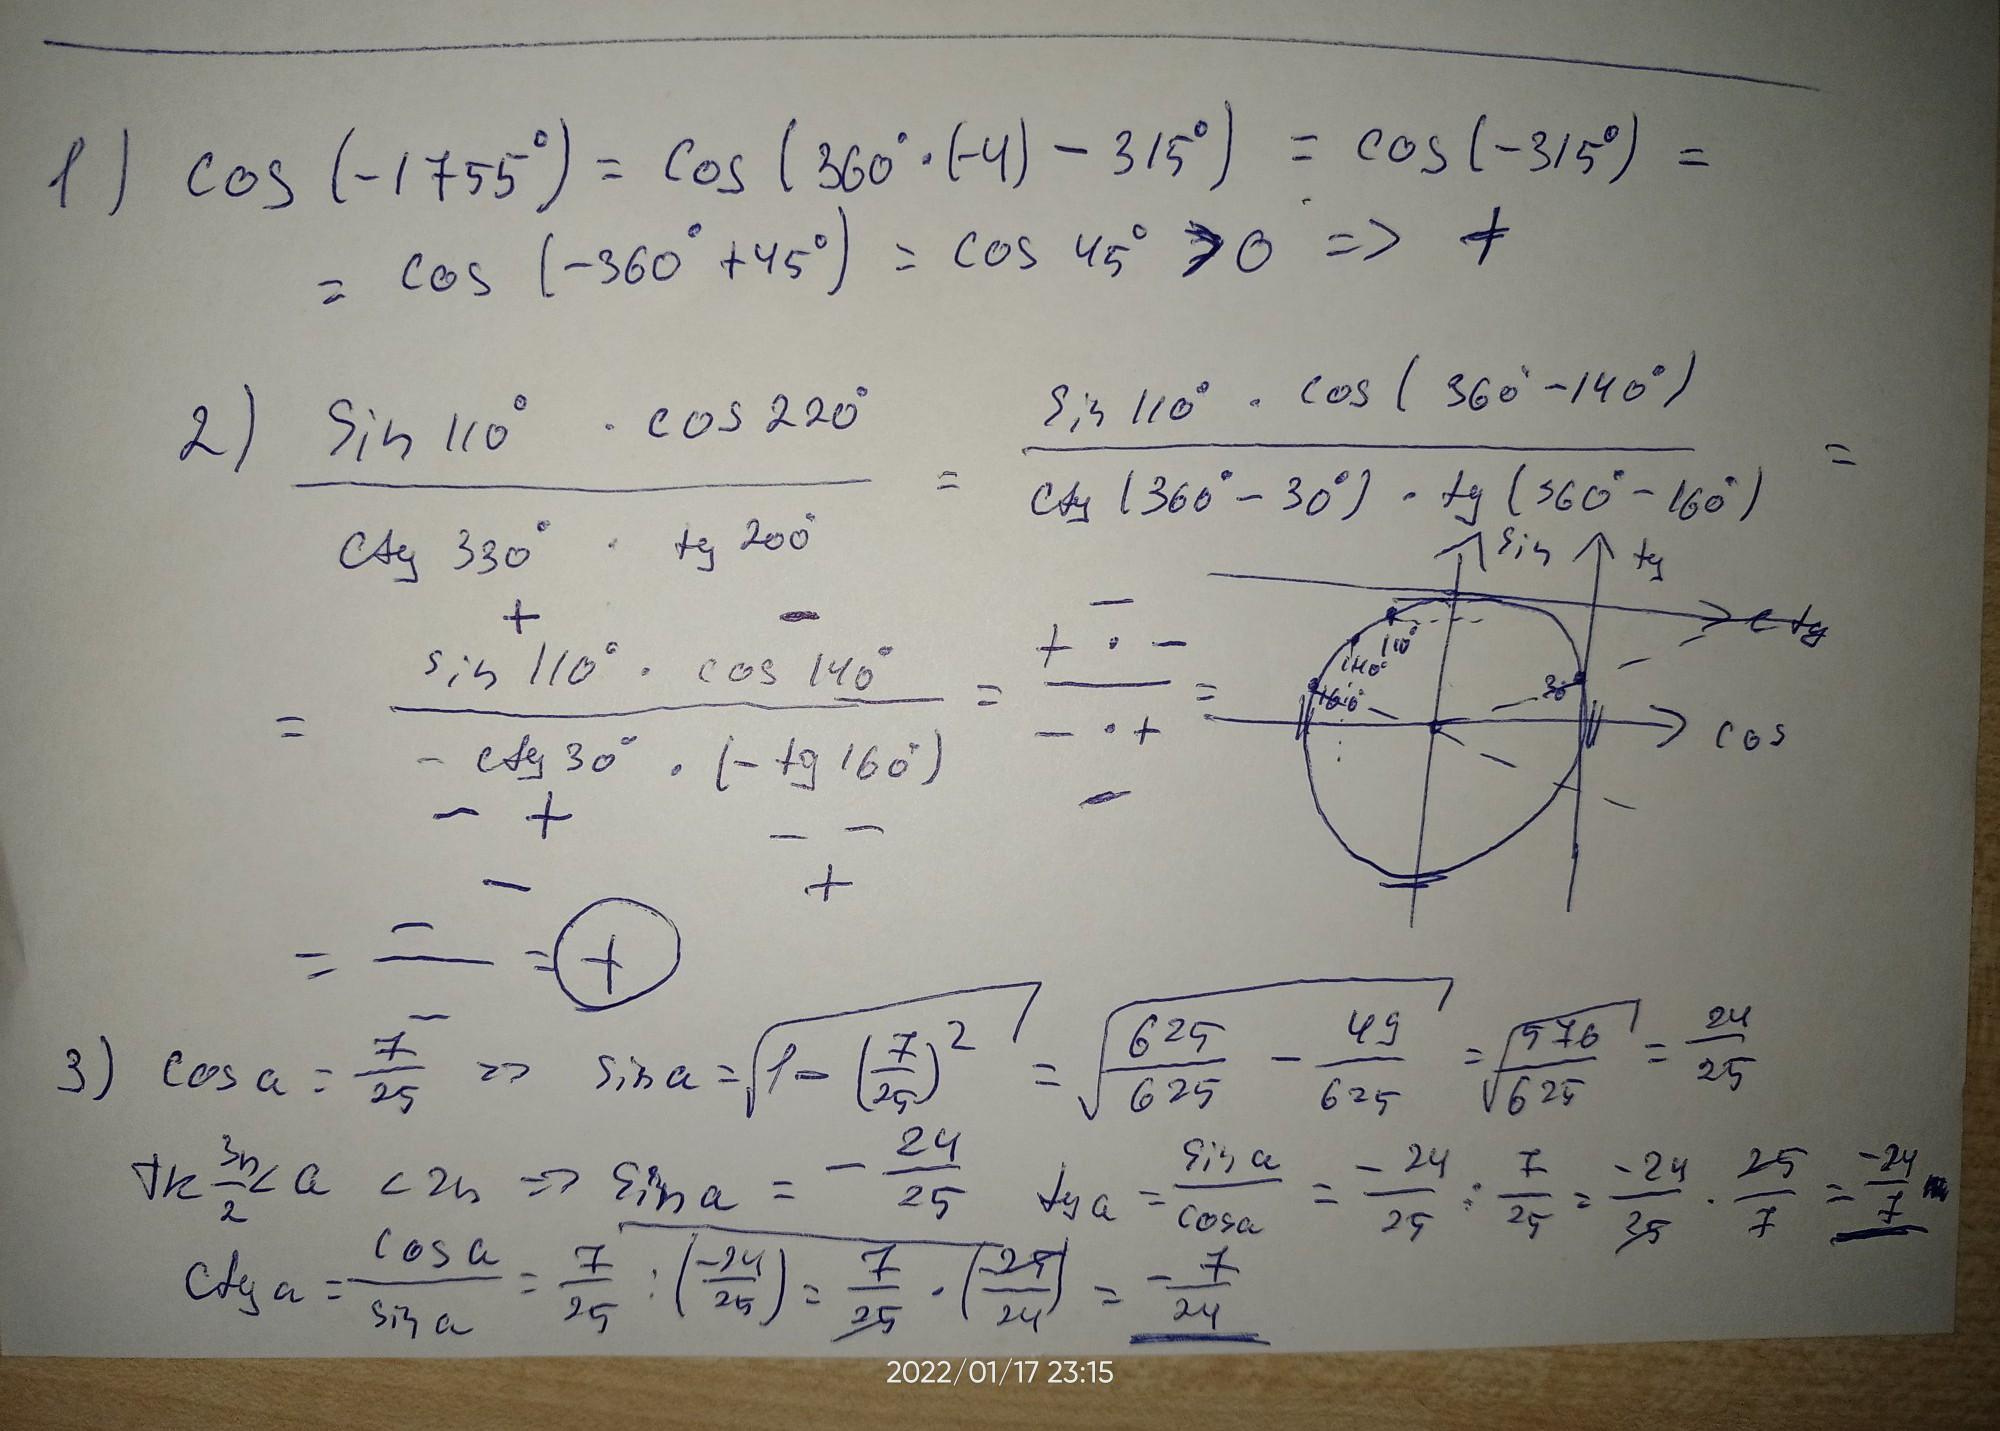 1) cos (-1755°) = cos (360°·(-4) - 315°) = cos (-315°) =
= cos (-360° + 45°) = cos 45° > 0 => +
2) (sin 110° · cos 220°) / (ctg 330° · tg 200°) = (sin 110° · cos (360° - 140°)) / (ctg (360° - 30°) · tg (360° - 160°)) =
+ -
= (sin 110° · cos 140°) / (- ctg 30° · (- tg 160°)) = (+ · -) / (- · +) =
- + - -
- +
= - / - = +
sin tg
ctg
110°
140°
160° 30°
cos
3) cos a = 7/25 => sin a = √(1 - (7/25)²) = √(625/625 - 49/625) = √(576/625) = 24/25
тк 3π/2 < a < 2π => sin a = - 24/25 tg a = sin a / cos a = -24/25 : 7/25 = -24/25 · 25/7 = -24/7
ctg a = cos a / sin a = 7/25 : (-24/25) = 7/25 · (-25/24) = - 7/24
2022/01/17 23:15